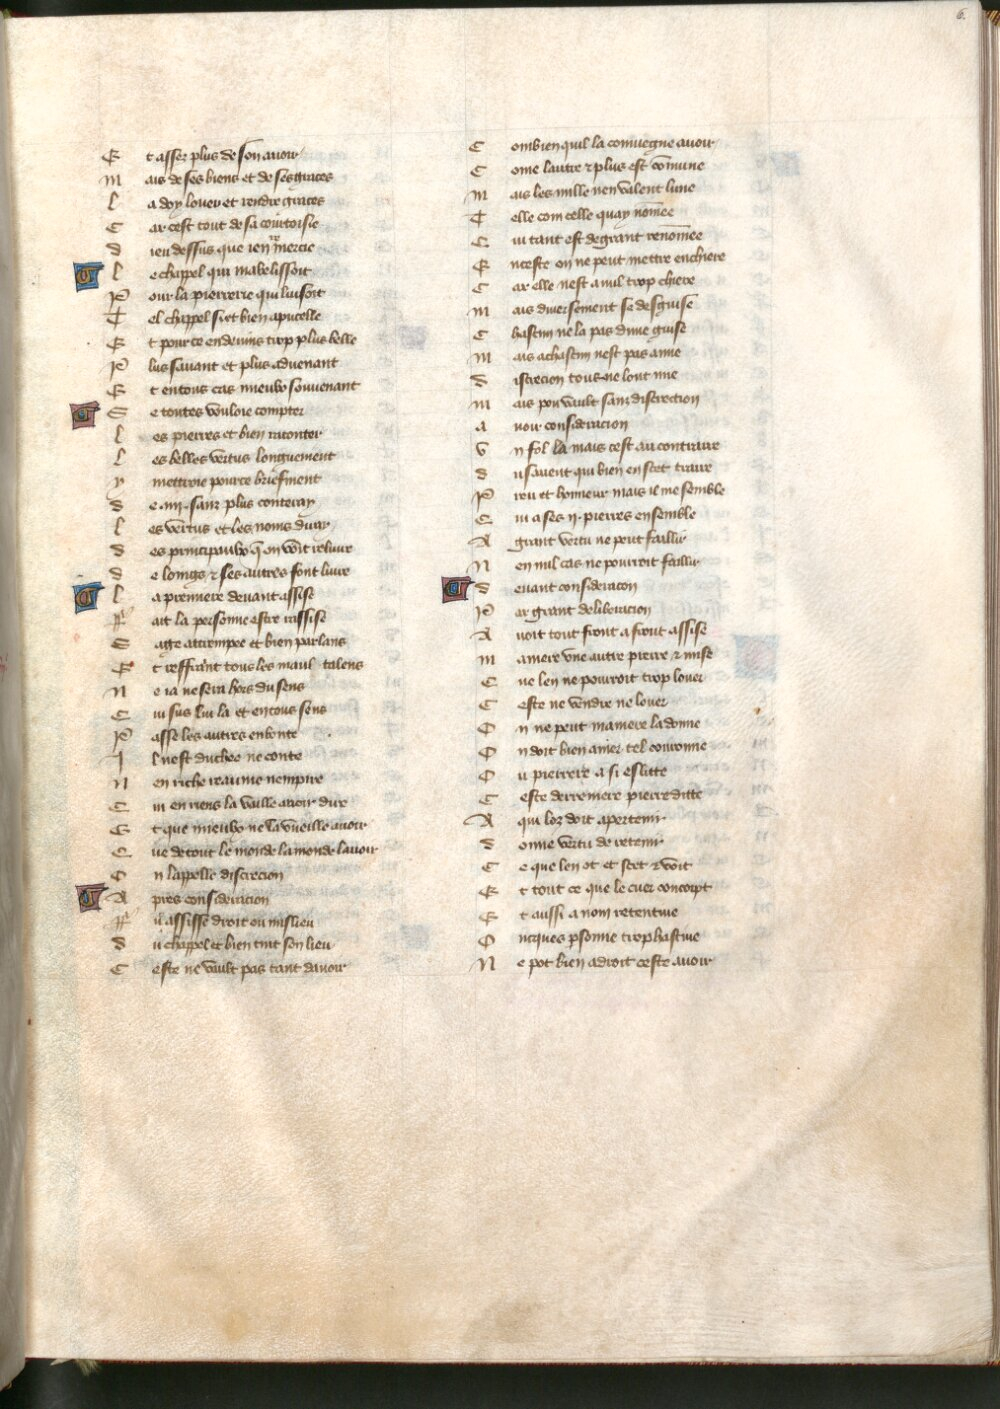 6.
Et assez plus de son avoir
Mais de ses biens et de ses graces
La doy louer et rendre graces
Car cest tout de sa courtoisie
Dieu dessus que ien mercie
Le chappel qui mabelissoit
Pour la pierrerie qui luisoit
Tel chappel si et bien apucelle
Et pour ce en devins trop plus belle
Plus savant et plus advenant
Et en tous cas mieulx souvenant
Se toutes vouloie compter
Les pierres et bien raconter
Les belles vertus longuement
Y mettroie pource briefment
De .iiii. sanz plus conteray
Les vertus et les noms diray
Des principaulx q̄ on voit reluire
De loings ⁊ ses autres font luire
La premiere devant assise
Fait la personne estre rassise
Sage attrempee et bien parlans
Et reffraint tous les maulx talens
Ne ia ne sera hors du sens
Cui sus lui la et en tous sens
Passe les autres en bonte
Il nest duchee ne conte
Nen riche reaume nempire
Cui en riens la vaille a voir dire
Et que mieulx ne la vueille avoir
Que de tout le monde lavoir
On lappelle discrecion
Apres consideracion
Fu assisse droit ou mislieu
Du chappel et bien tint son lieu
Ceste ne vault pas tant davoir
Combien quil la conviegne avoir
Come lautre ⁊ plus est cōmune
Mais les mille nen valent lune
Telle com celle quay nōmee
Cui tant est de grant renōmee
Enceste on ne peut mettre enchiere
Car elle nest a nul trop chiere
Mais diversement se desguise
Chascun ne la pas dune guise
Mais a chascun nest pas amie
Discrecion tous ne lont mie
Mais pou vault sanz discrection
Avoir consideracion
Un fol la mais cest au contraire
Du savent qui bien en scet traire
Preu et honneur mais il me semble
Cui a ses .ii. pierres ensemble
A grant vertu ne peut faillir
Nen nul cas ne pourroit faillir
Devant consideracon
Par grant deliberacion
Avoit tout front a front assise
Mamere une autre pierre ⁊ mise
Que len ne pourroit trop louer
Ceste ne vendre ne louer
On ne peut ma mere la donne
On doit bien amer tel couronne
Ou pierrerie a si eslitte
Ceste derreniere pierre ditte
A qui loz doit apertenir
Donne vertu de retenir
Ce que len ot et scet ⁊ voit
Et tout ce que le cuer concoipt
Et aussi a nom retentive
Oncques psonne trop hastive
Ne pot bien adroit ceste avoir